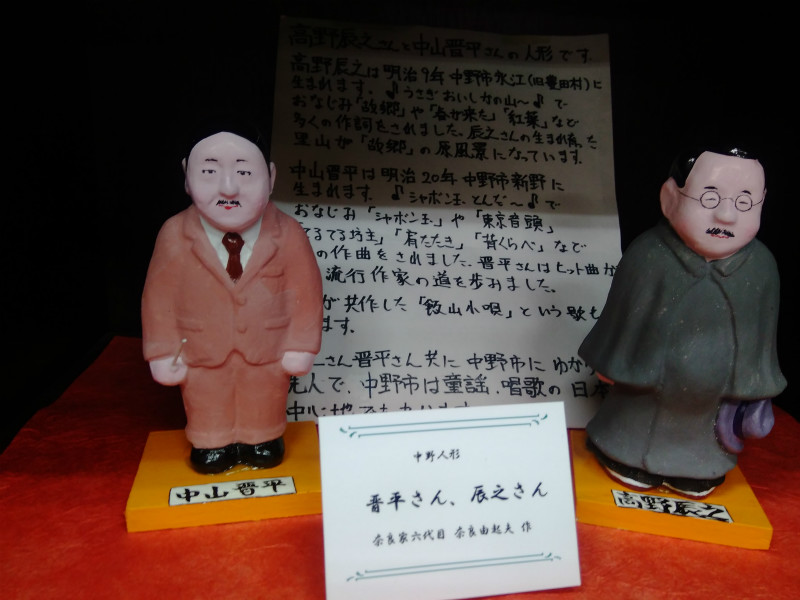 高野辰之さんと中山晋平さんの人形です。
高野辰之は明治9年中野市永江(旧豊田村)に
生まれます。♪うさぎおいしかの山〜♪で
おなじみ「故郷」や「春が来た」「紅葉」など
多くの作詞をされました。辰之さんの生まれ育った
里山が「故郷」の原風景になっています。
中山晋平は明治20年中野市新野に
生まれます。♪シャボン玉とんだ〜♪で
おなじみ「シャボン玉」や「東京音頭」
てるてる坊主」「肩たたき」「背くらべ」など
の作曲をされました。晋平さんはヒット曲
流行作家の道を歩みました。
が共作した「飯山小唄」という歌も
ます。
さん晋平さん共に中野市にゆか
先人で、中野市は童謡、唱歌の日
中山晋平
高野辰之
中野人形
晋平さん、辰之さん
奈良家六代目 奈良由起夫 作